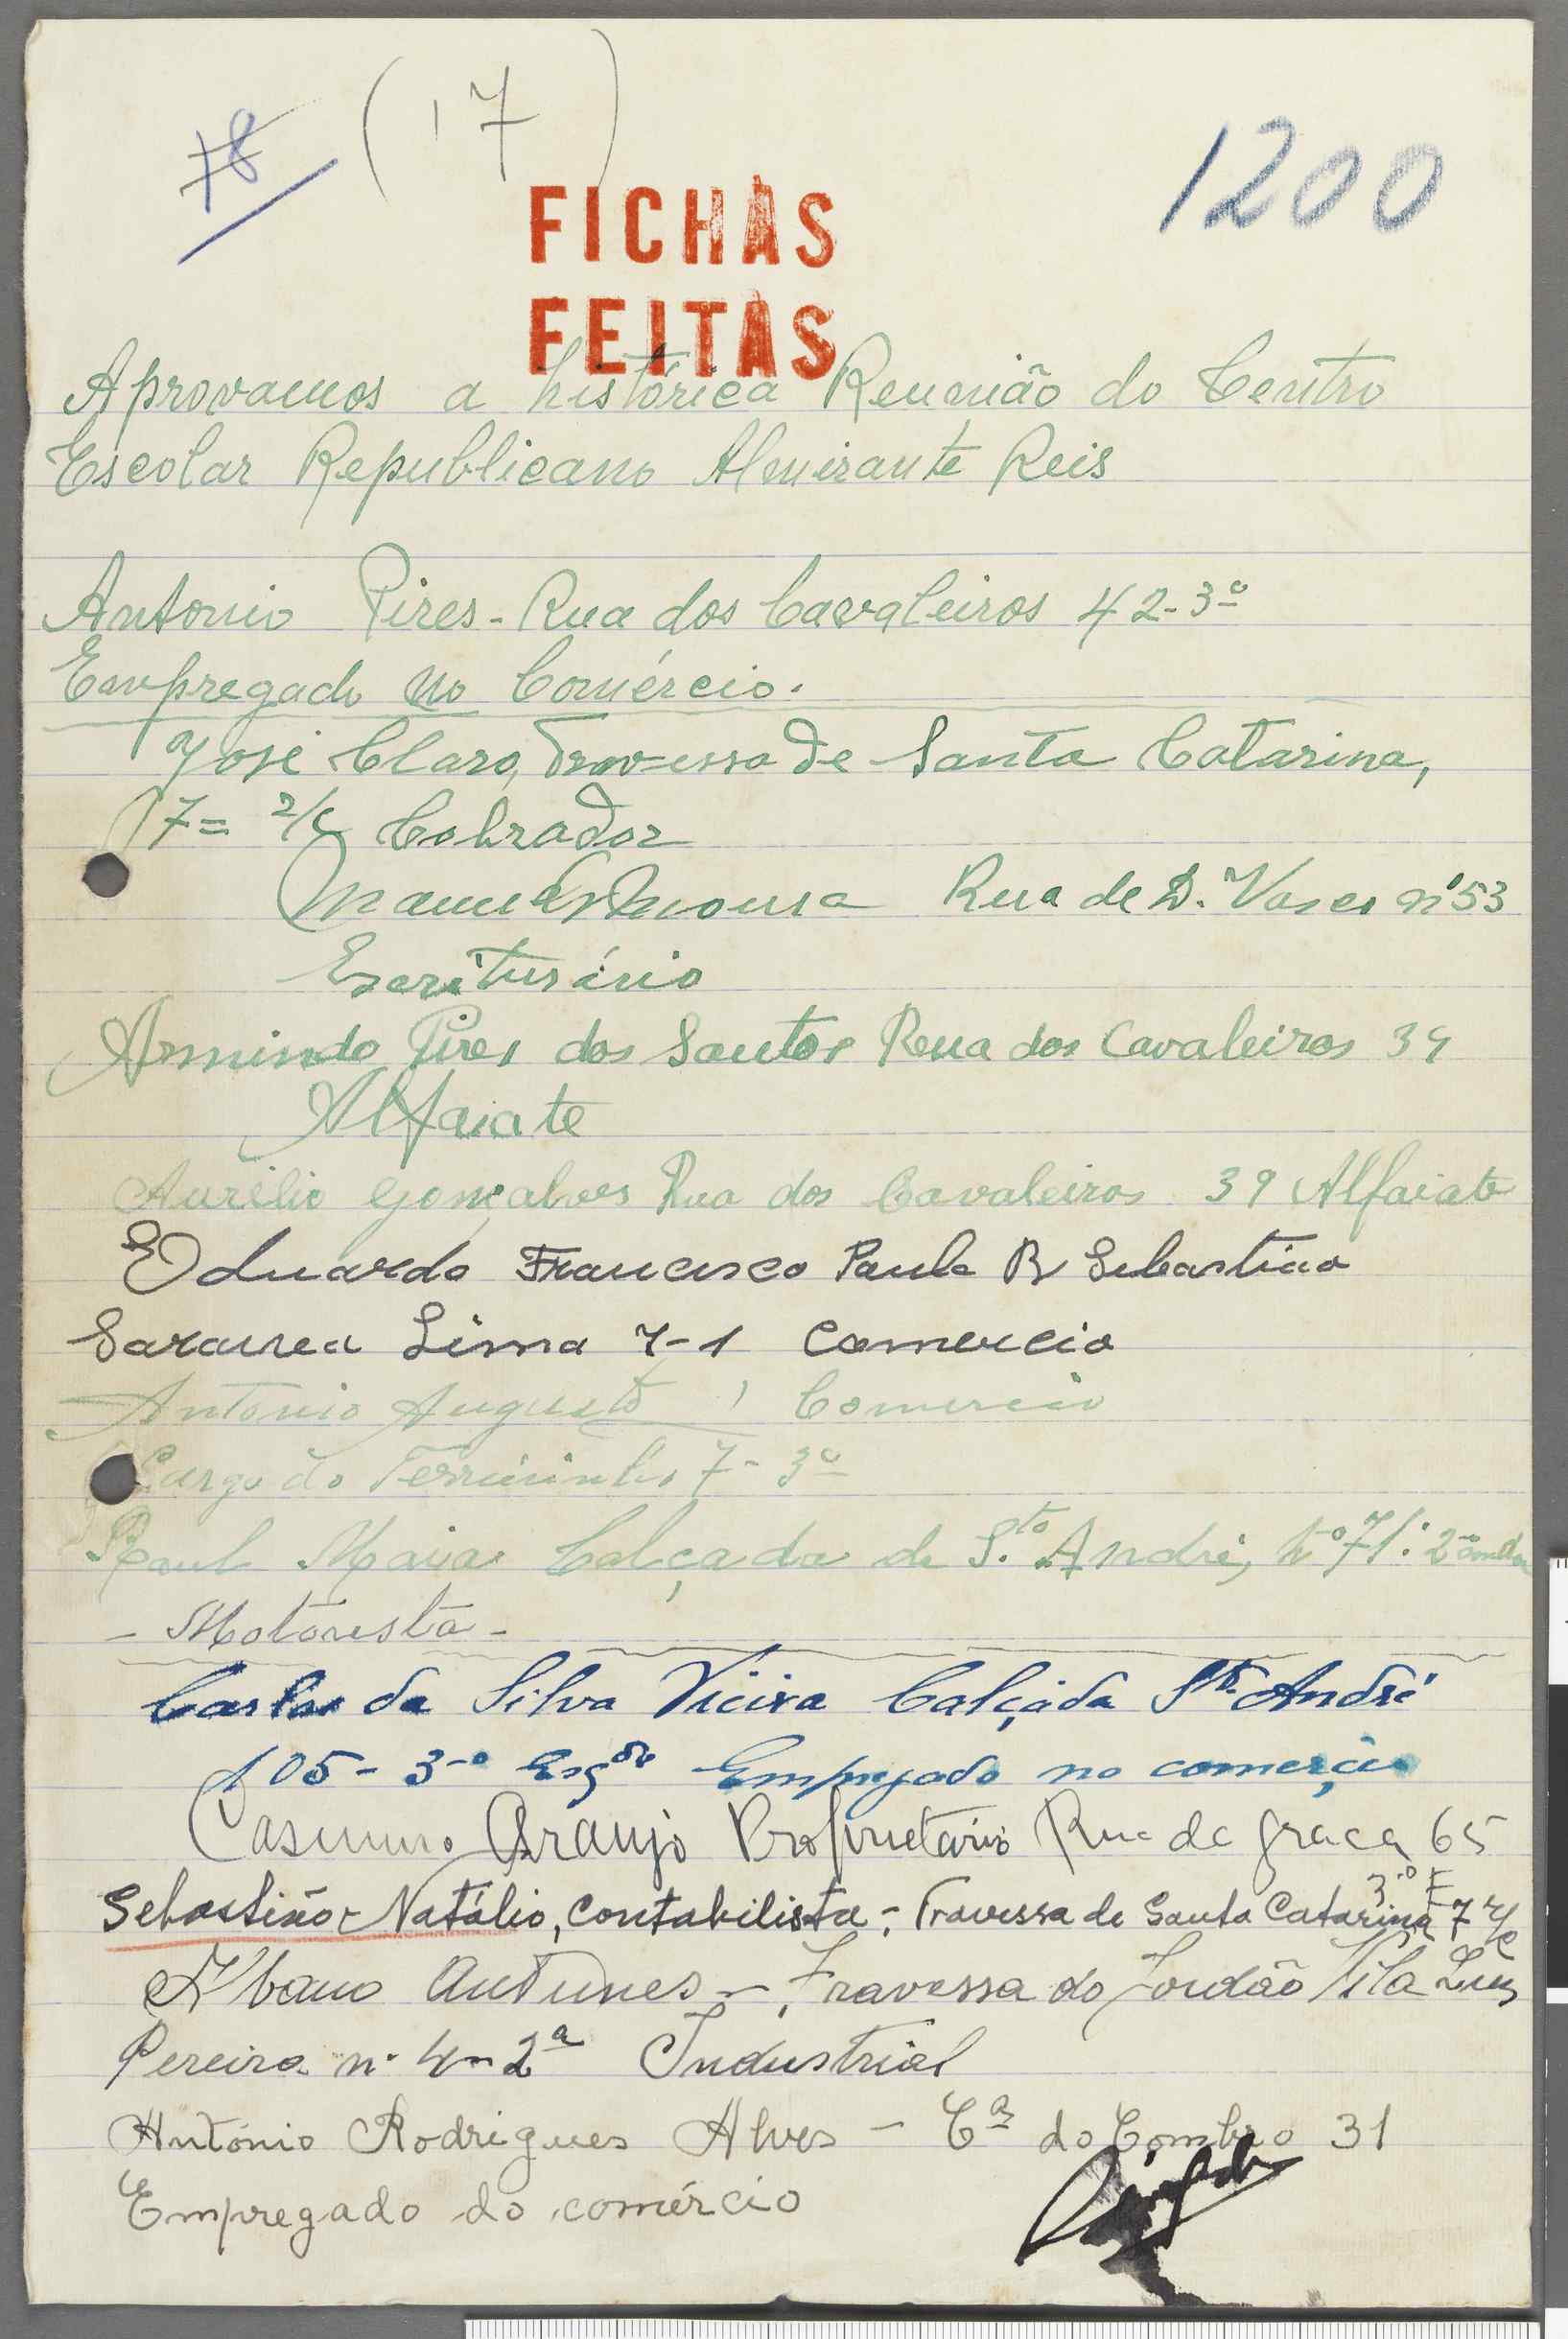 78 (17)
1200
FICHAS
FEITAS
Aprovamos a histórica Reunião do Centro
Escolar Republicano Almirante Reis
Antonio Pires - Rua dos Cavaleiros 42-3º
Empregado no Comércio.
José Claro, Travessa de Santa Catarina,
7= r/c Cobrador
Manuel Moura Rua de D. Vasco nº 53
Escriturário
Armindo Pires dos Santos Rua dos Cavaleiros 39
Alfaiate
Aurélio Gonçalves Rua dos Cavaleiros 39 Alfaiate
Eduardo Francisco Paula R Sebastião
Saraiva Lima 7-1 Comercio
Antonio Augusto, Comercio
Largo do Terreirinho 7-3º
Raul Maia Calçada de S.to André, nº 71: 2º andar
- Motorista -
Carlos da Silva Vieira Calçada Stº André
105 - 3-º Esqdo Empregado no comercio
Casimiro Araujo Proprietário Rua da Graça 65
3.º E
Sebastião Natálio, contabilista - Travessa de Santa Catarina 7 r/c
Albano Antunes - Travessa do Jordão Vila Luz
Pereira nº 4-2ª Industrial
António Rodrigues Alves - Cª do Combro 31
Empregado do comércio